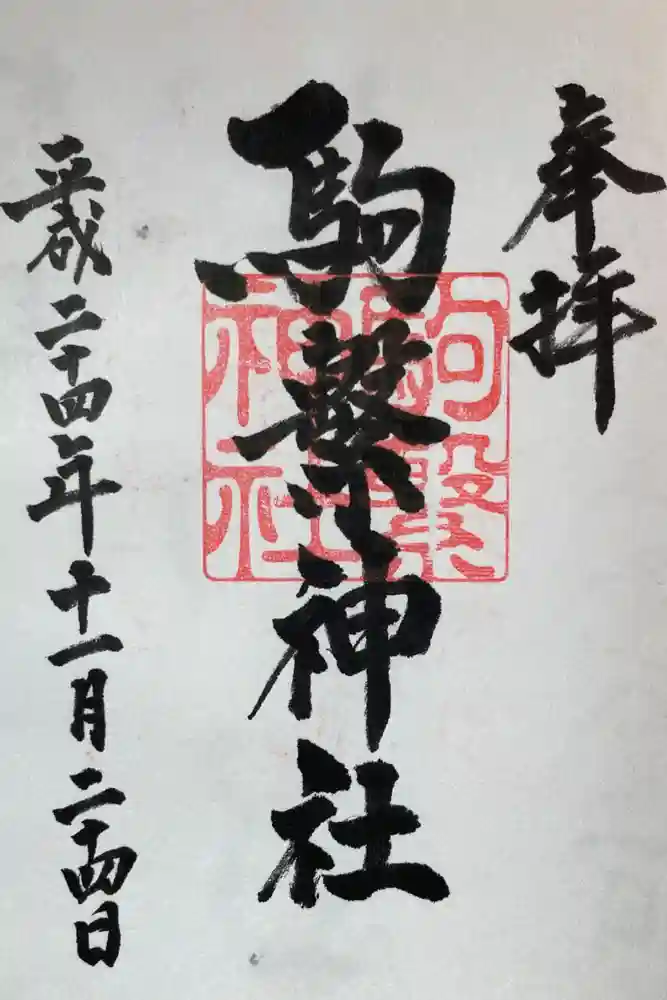 奉拝
駒繋神社
駒繋神社
平成二十四年十一月二十四日